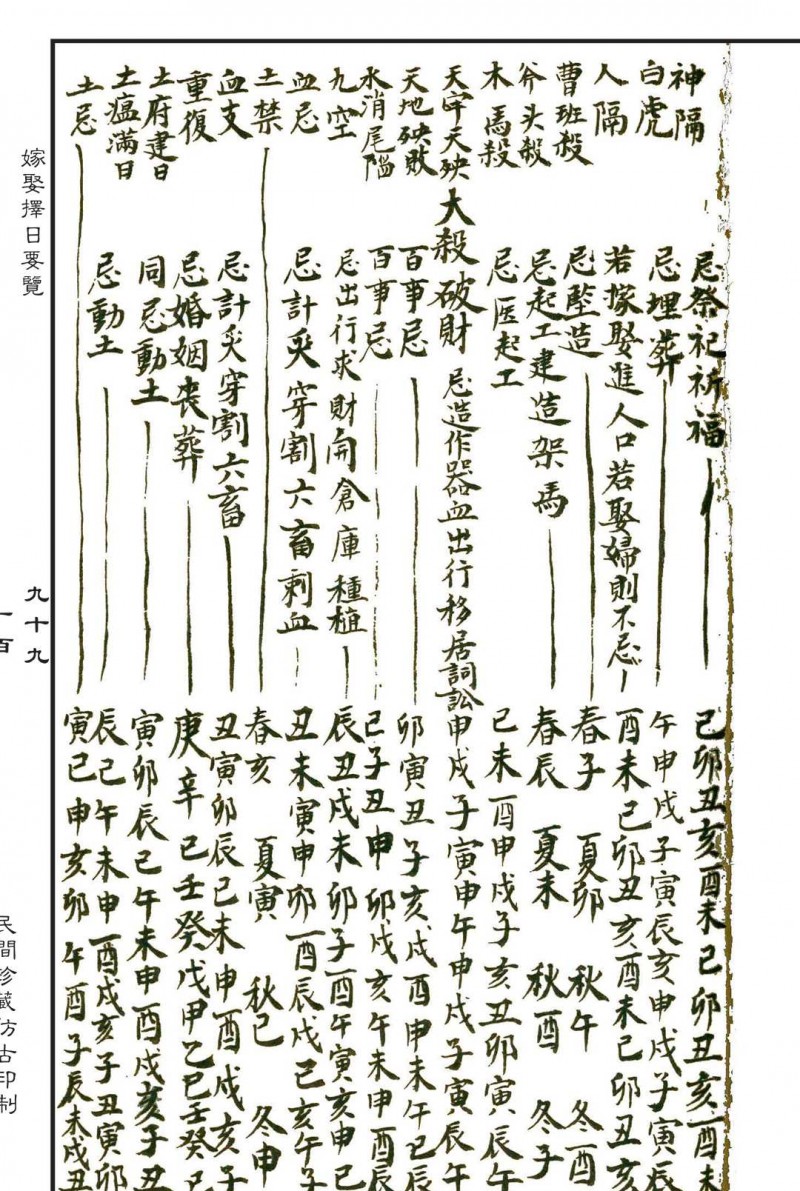 神隔 忌祭祀祈福 巳卯丑亥酉未巳卯丑亥酉未
白虎 忌埋葬 午申戌子寅辰亥申戌子寅辰
人隔 若嫁娶進人口若娶婦則不忌 酉未巳卯丑亥酉未巳卯丑亥
曹班殺 忌豎造 春子 夏卯 秋午 冬酉
斧头殺 忌起工建造架馬 春辰 夏未 秋酉 冬子
木馬殺 忌匠起工 巳未酉申戌子亥丑卯寅辰午
天牢天殃 大殺破財 忌造作器血出行移居詞訟 申戌子寅申午申戌子寅辰午
天地殃敗 百事忌 卯寅丑子亥戌酉申未午巳辰
水消尾陷 百事忌 巳子丑申卯戌亥午未申酉辰
九空 忌出行求財開倉庫種植 辰丑戌未卯子酉午寅亥申巳
血忌 忌計炙穿割六畜刺血 丑未寅申卯酉辰戌巳亥午子
土禁 春亥 夏寅 秋巳 冬申
血支 忌計炙穿割六畜 丑寅卯辰巳未申酉戌亥子
重復 忌婚姻丧葬 庚辛己壬癸戊甲乙巳壬癸己
土府建日 同忌動土 寅卯辰巳午未申酉戌亥子丑
土瘟滿日 忌動土 辰巳午未申酉戌亥子丑寅卯
土忌 寅巳申亥卯午酉子辰未戌丑
嫁娶擇日要覽
九十九
一百
民間珍藏仿古印制